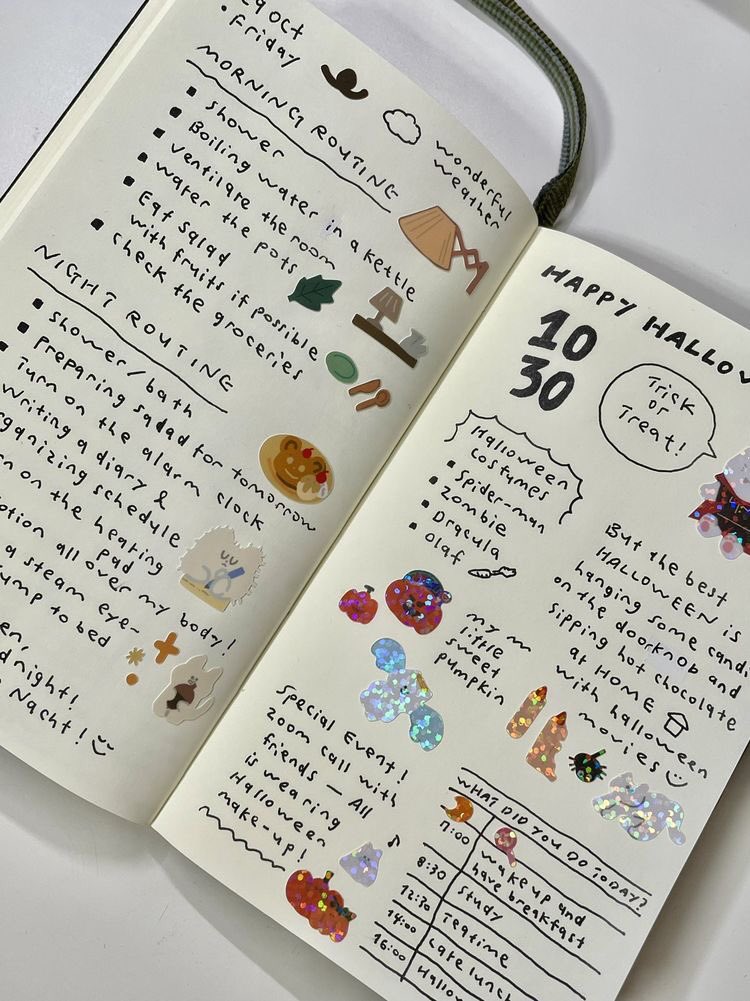 oct
• Friday
wonderful
weather
MORNING ROUTINE
■ shower
■ Boiling water in a kettle
■ ventilate the room
■ water the pots
■ Eat salad
with fruits if possible
■ check the groceries
NIGHT ROUTINE
■ shower/bath
■ Preparing salad for tomorrow
■ Turn on the alarm clock
writing a diary &
organizing schedule
on the heating
pad
all over my body!
a steam eye-
to bed
Nacht!
HAPPY
10
30
Trick
or
Treat!
Halloween
costumes
■ Spider-man
■ Zombie
■ Dracula
■ Olaf
But the best
HALLOWEEN is
hanging some
on the doorknob and
sipping hot chocolate
at HOME
with halloween
movies
my
little
sweet
pumpkin
Special Event!
zoom call with
friends — All
is wearing
Halloween
make-up!
WHAT DID YOU DO TODAY?
7:00 wake up and
have breakfast
8:30 study
12:30 Teatime
14:00 late lunch
16:00